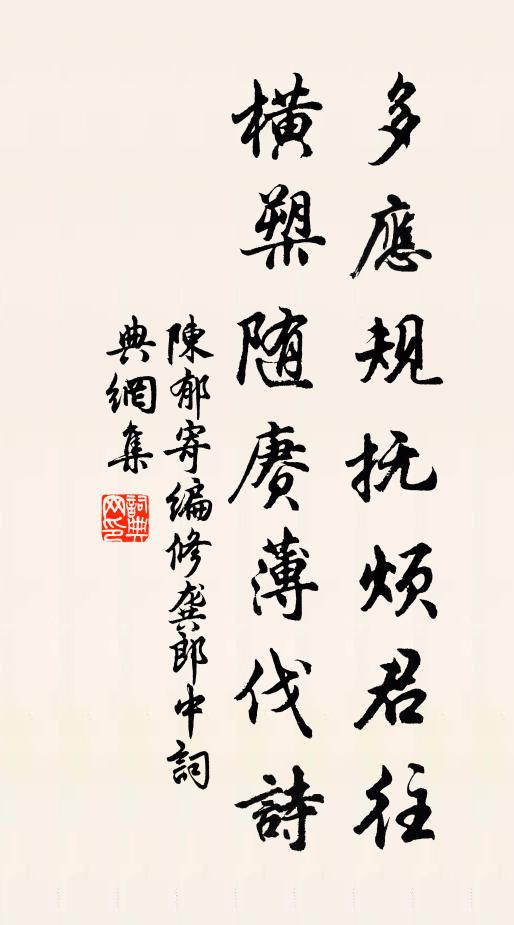 多應規抚煩君往
橫槊随賡薄伐詩
陳郁寄編修龔郎中詞
典網集
詞典网印